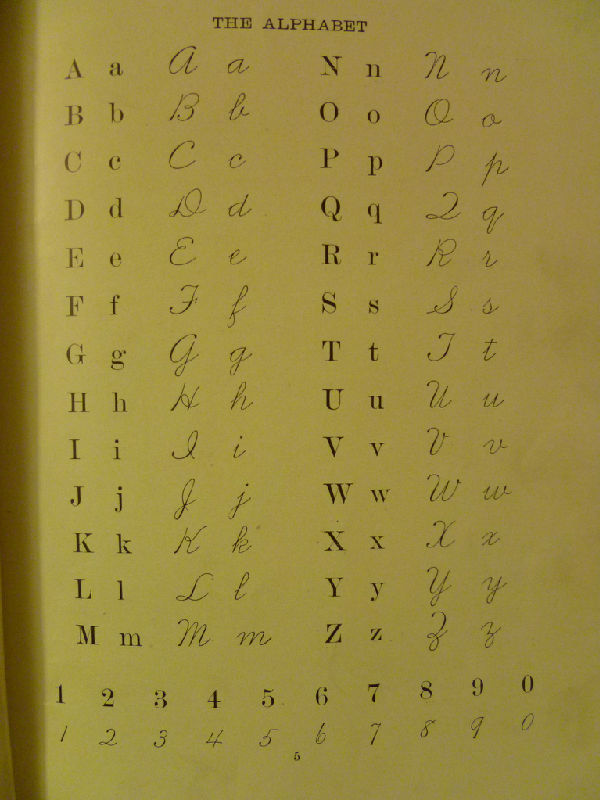 THE ALPHABET
A a A a N n N n
B b B b O o O o
C c C c P p P p
D d D d Q q Q q
E e E e R r R r
F f F f S s S s
G g G g T t T t
H h H h U u U u
I i I i V v V v
J j J j W w W w
K k K k X x X x
L l L l Y y Y y
M m M m Z z Z z
1 2 3 4 5 6 7 8 9 0
1 2 3 4 5 6 7 8 9 0
5